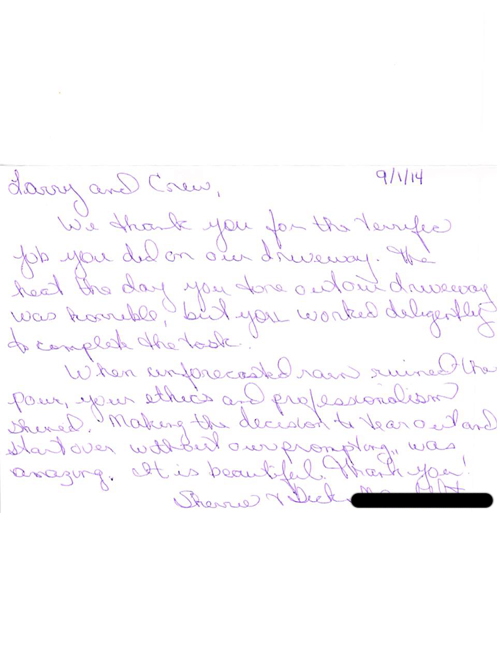 9/1/14
Larry and Crew,
We thank you for the terrific
job you did on our driveway. The
heat the day you tore out our driveway
was horrible, but you worked diligently
to complete the task.
When unforecasted rain ruined the
pour, your ethics and professionalism
shined. Making the decision to tear out and
start over without our prompting, was
amazing. It is beautiful. Thank you!
Sherrie & Dick